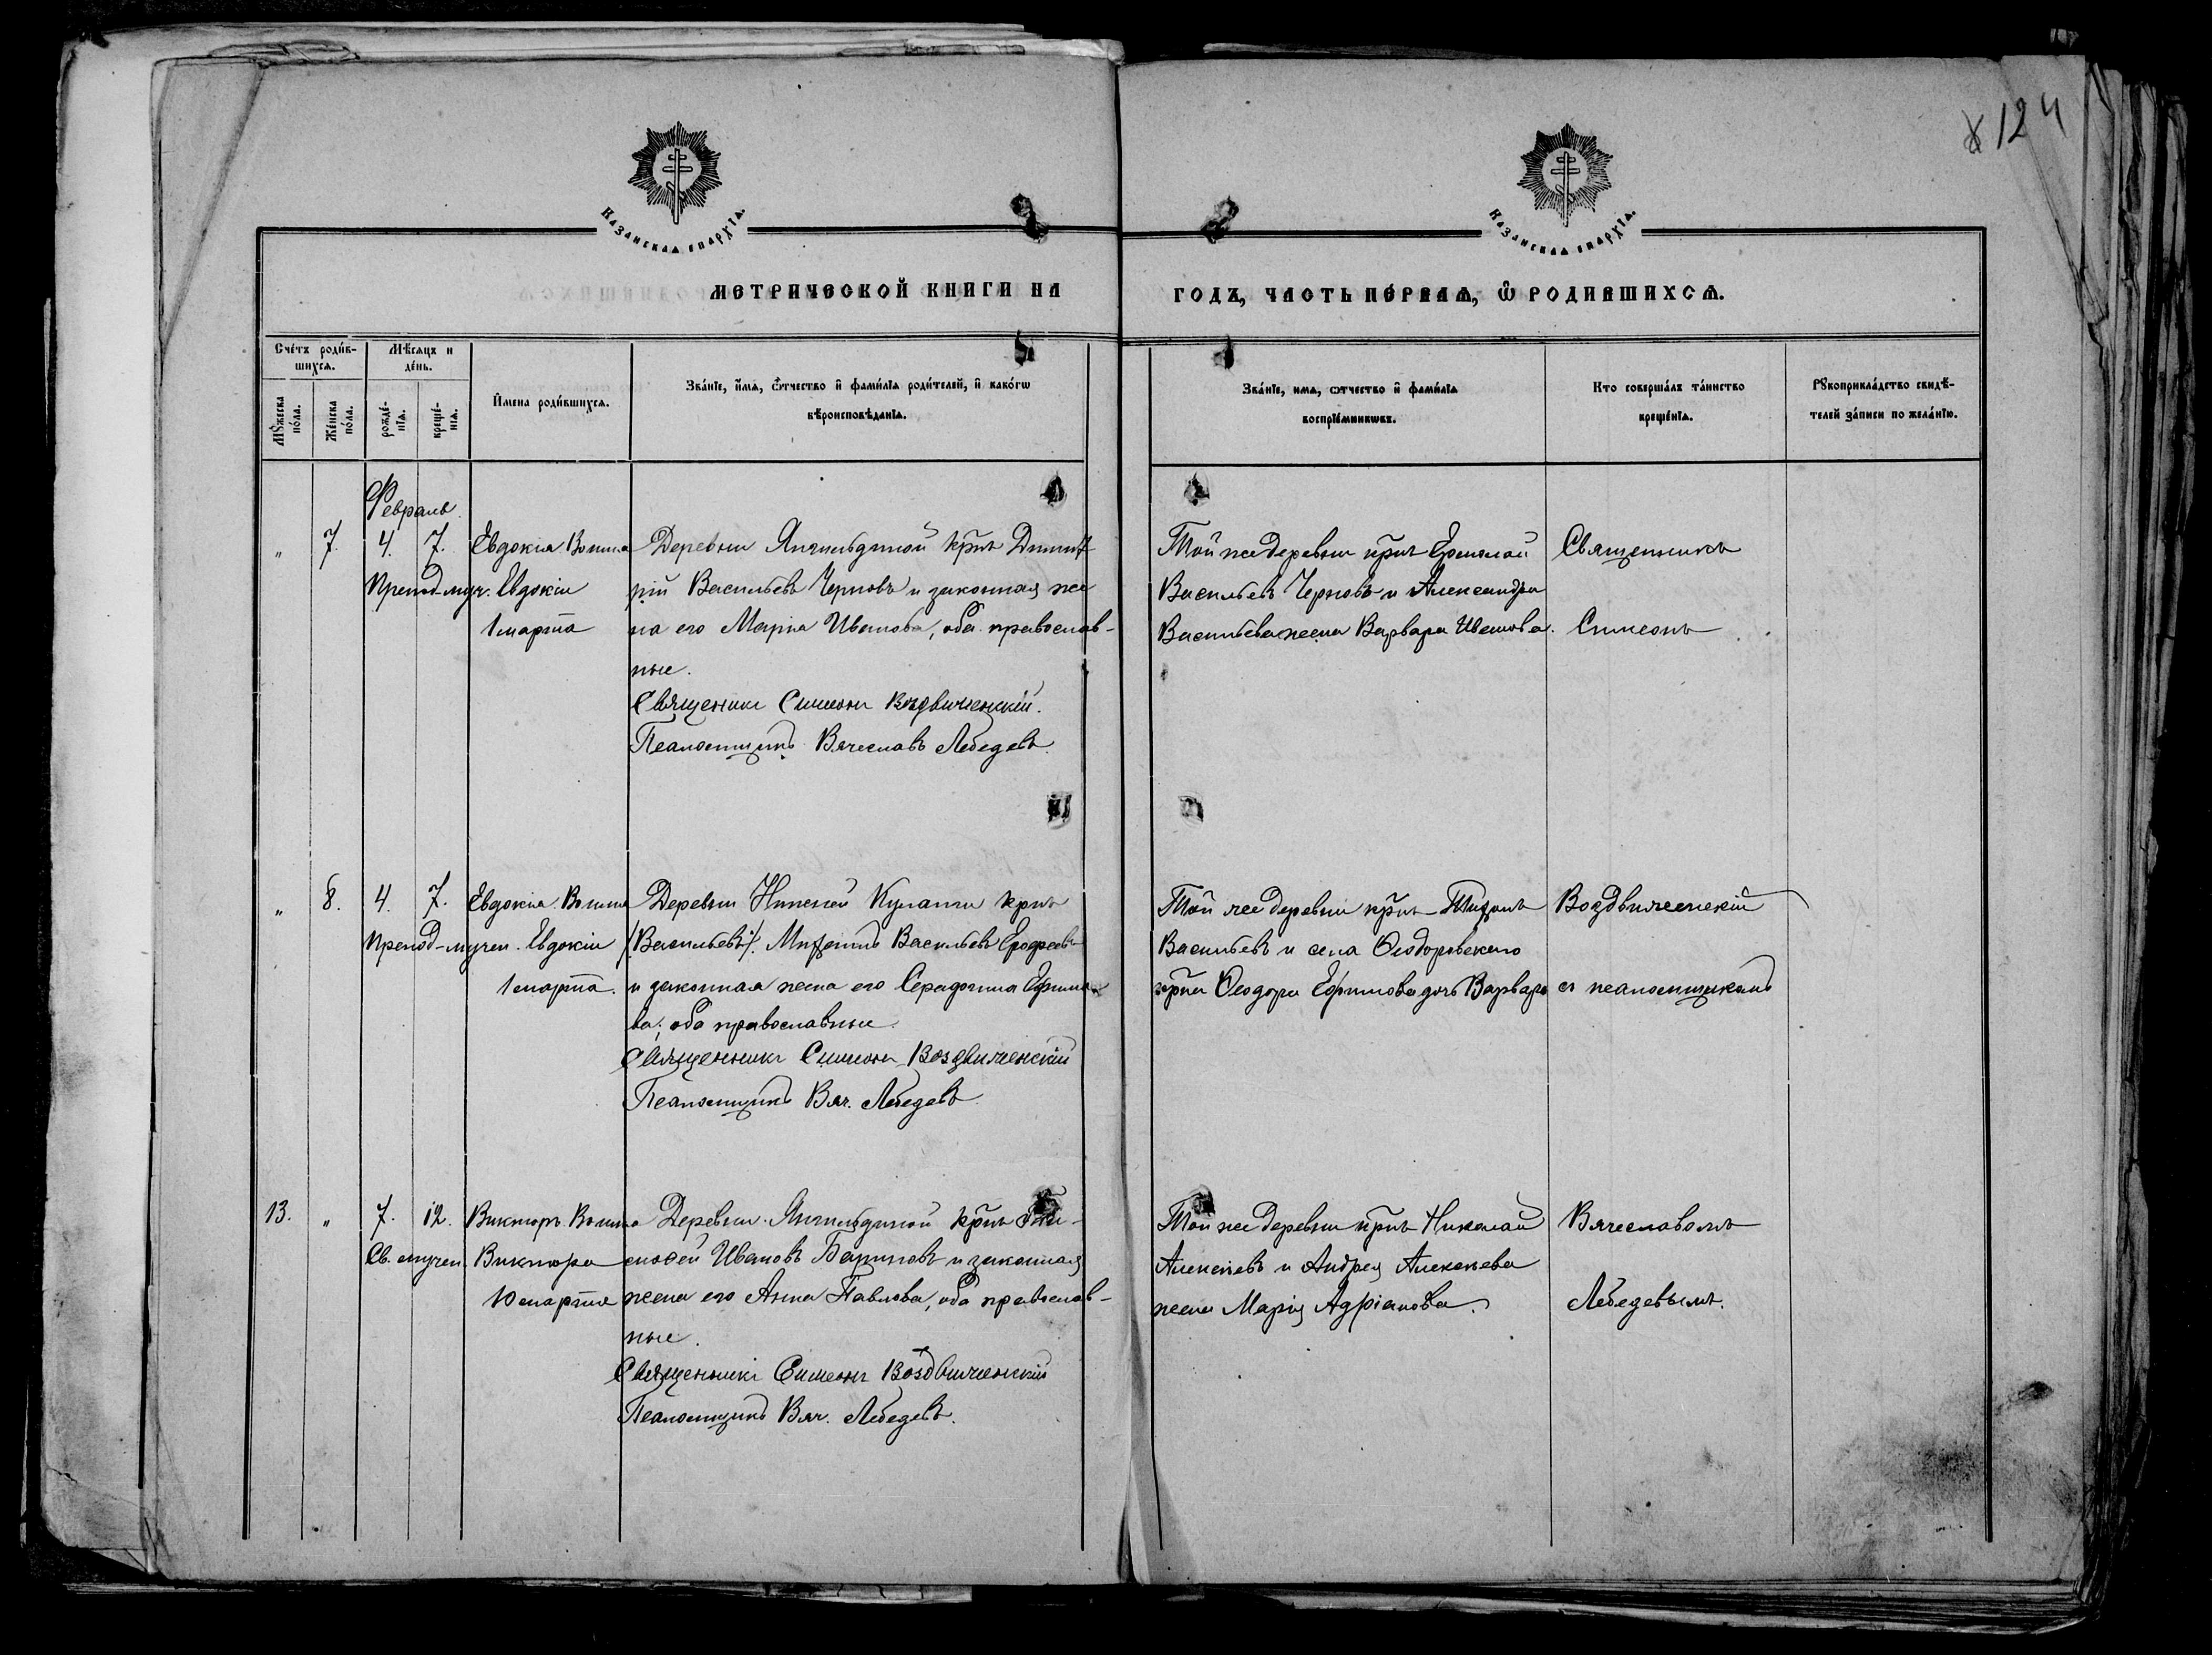 124
Казанская епархїа.
Казанская епархїа.
МЕТРИЧЕСКОЙ КНИГИ НА
ГОДЪ, ЧАСТЬ ПЕ́РВАЯ, Ѡ҆ РОДИВШИХСѦ.
Сче́тъ роди́в-
шихсѧ.
Мѣсѧцъ и
де́нь.
Мꙋжеска
по́ла.
Же́нска
по́ла.
рожде́-
нїѧ.
креще́-
нїѧ.
И҆мена роди́вшихсѧ.
Зва́нїе, и҆́мѧ, ѻ҆́тчество и҆ фами́лїѧ роди́телей, и҆ како́гѡ
вѣроисповѣ́данїѧ.
Зва́нїе, имѧ, ѻтчество и҆ фами́лїѧ
воспрїе́мникѡвъ.
Кто соверша́лъ та́инство
креще́нїѧ.
Рꙋкоприкла́дство свидѣ́-
телей за́писи по жела́нїю.
Февраль
„ 7. 4. 7. Евдокiа. Во имя
Препод-муч. Евдокiи
1 марта
Деревни Янгильдиной крнъ Димит-
рiй Васильевъ Черновъ и законная же
на его Марiя Иванова, оба православ-
ные.
Священникъ Симеонъ Воздвиженскiй.
Псаломщикъ Вячеславъ Лебедевъ.
Той же деревни крнъ Ермолай
Васильевъ Черновъ и Александра
Васильева жена Варвара Иванова.
Священникъ
Симеонъ
„ 8. 4. 7. Евдокiа. Во имя
Препод-мучен. Евдокiи
1 марта.
Деревни Нижней Куланги крнъ
/Васильевъ/. Митрофанъ Васильевъ
и законная жена его Ефимо-
ва; оба православные.
Священникъ Симеонъ Воздвиженскiй
Псаломщикъ Вяч. Лебедевъ
Той же деревни крнъ Тихонъ
Васильевъ и села Ѳеодоровскаго
крна Ѳеодора Ефимова дочь Варвара
Воздвиженскiй
съ псаломщикомъ
13. „ 7. 12. Викторъ. Во имя
Св. мучен. Виктора
10 марта
Деревни Янгильдиной крнъ Ти-
моѳей Ивановъ Бариновъ и законная
жена его Анна Павлова, оба православ-
ные.
Священникъ Симеонъ Воздвиженскiй
Псаломщикъ Вяч. Лебедевъ.
Той же деревни крнъ Николай
Алексѣевъ и Андрея Алексѣева
жена Марiя Адрiанова.
Вячеславомъ
Лебедевымъ.